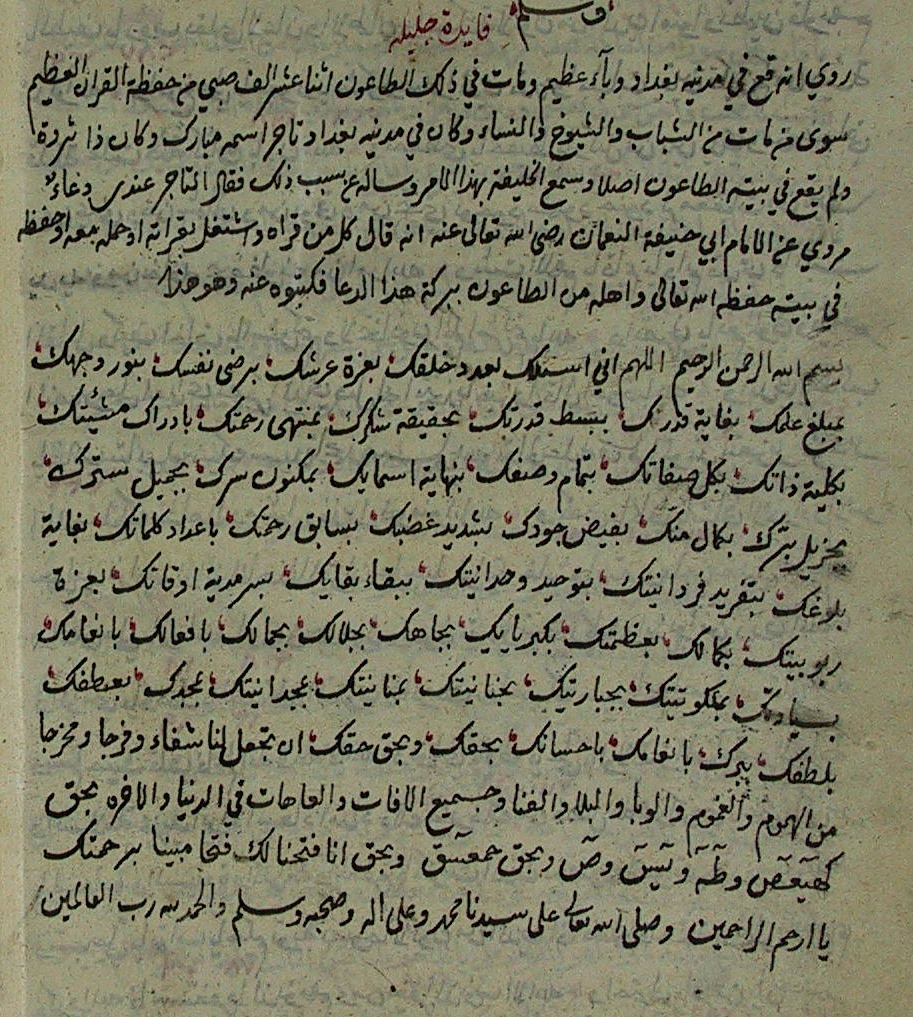 وسلم فايدة جليله
روي انه قع في مدنيه بغداد وبآء عظيم ومات في ذلك الطاعون اثنا عشر الف صبي من حفظة القران العظيم
سوى من مات من الشباب والشيوخ والنساء وكان في مدنيه بغداد تاجر اسمه مبارك وكان ذا ثروة
ولم يقع في بيته الطاعون اصلا وسمع الخليفة بهذا الامر وساله عن سبب ذلك فقال التاجر عندى دعاء
مروي عن الامام ابي حنيفة النعمان رضى الله تعالى عنه انه قال كل من قراه واشتغل بقراته او حمله معه او حفظه
في بيته حفظه الله تعالى واهله من الطاعون ببركة هذا الدعا فكتبوه عنه وهو هذا
بسم الله الرحمن الرحيم اللهم اني اسئلك بعدد خلقك بعزة عرشك برضى نفسك بنور وجهك
بمبلغ علمك بغاية قدرك ببسط قدرتك بحقيقة شكرك بمنتهى رحمتك بادراك مشئيتك
بكلية ذاتك بكل صفاتك بتمام وصفك بنهاية اسمايك بمكنون سرك بجميل سترك
بجزيل برك بكمال منك بفيض جودك بشديد غضبك بسابق رحمتك باعداد كلماتك بغاية
بلوغك بتفريد فردانيتك بتوحيد وحدانيتك ببقاء بقايك بسرمدية اوقاتك بعزة
ربوبيتك بكمالك بعظمتك بكبريايك بجاهك بجلالك بجمالك بافعالك بانعامك
بسيادتك بملكوتيتك بجباريتك بحنانيتك بمنانيتك بمجدانيتك بمجدك بعطفك
بلطفك ببرك بانعامك باحسانك بحقك وبحق حقك ان تجعل لنا شفاء وفرجا ومخرجا
من الهموم والغموم والوبا والبلا والفنا وجميع الافات والعاهات في الدنيا والاخره بحق
كهيعص وطه ويس وص وبحق حمعسق وبحق انا فتحنا لك فتحا مبينا برحمتك
يا ارحم الراحمين وصلى الله تعالى على سيدنا محمد وعلى اله وصحبه وسلم والحمد لله رب العالمين